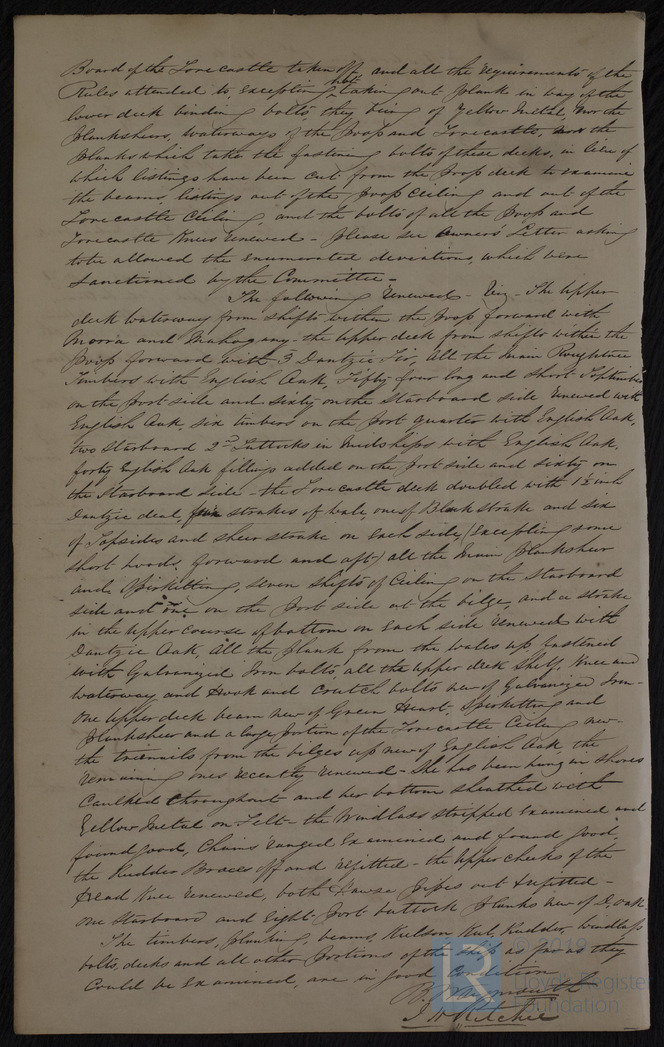 Board of the Forecastle taken off, and all the requirements of the
Rules attended to excepting not taking out plank in way of the
lower deck binding bolts they being of Yellow Metal, nor the
planksheers, waterways of the poop and Forecastle, nor the
planks which take the fastening bolts of these decks, in lieu of
which listings have been cut from the Poop deck to examine
the beams, listings out of the poop Ceiling and out of the
Forecastle Ceiling, and the bolts of all the Poop and
Forecastle Knees renewed - please see Owners' Letter asking
to be allowed the enumerated deviations, which were
Sanctioned by the Committee -
The following renewed - Viz - The upper
deck waterway from shifts within the Poop forward with
Morra and Mahogany - the upper deck from shifts within the
Poop forward with 3 Dantzic Fir, All the main Roughtree
Timbers with English Oak, Fifty four long and short Toptimbers
on the port side and sixty on the Starboard side renewed with
English Oak, six timbers on the port quarter with English Oak,
two Starboard 2nd Futtocks in midships with English Oak,
forty English Oak fillings added on the port side and sixty on
the Starboard side - the Forecastle deck doubled with 1½ inch
Dantzic deal, strakes of wale, one of Black strake and six
of Topsides and sheer strake on each side, (Excepting some
short hoods, forward and aft) all the main planksheer
and Spirketting, seven shifts of Ceiling on the Starboard
side and one on the port side at the bilge, and a strake
in the upper course of bottom on each side renewed with
Dantzic Oak, All the plank from the wales up, fastened
with Galvanized Iron bolts, all the upper deck Shelf, Knee and
waterway and Hook and Crutch bolts new of Galvanized Iron -
One upper deck beam new of Green Heart - Spirketting and
planksheer and a large portion of the Forecastle Ceiling new -
the treenails from the bilges up new of English Oak the
remaining ones recently renewed - She has been hung in shores
Caulked throughout and her bottom sheathed with
Yellow Metal on Felt - the Windlass stripped Examined and
found good, Chains ranged Examined and found good,
the Rudder Braces off and refitted - the upper cheeks of the
Head Knee renewed, both Hawse pipes out & refitted -
One starboard and Eight port buttock planks new of E. oak
The timbers, planking, beams, Keelson Keel, Rudder, windlass
bolts, decks and all other portions of the ship as far as they
Could be examined, are in good Condition
J W Ritchie
LR © 2019
Lloyd's Register
Foundation